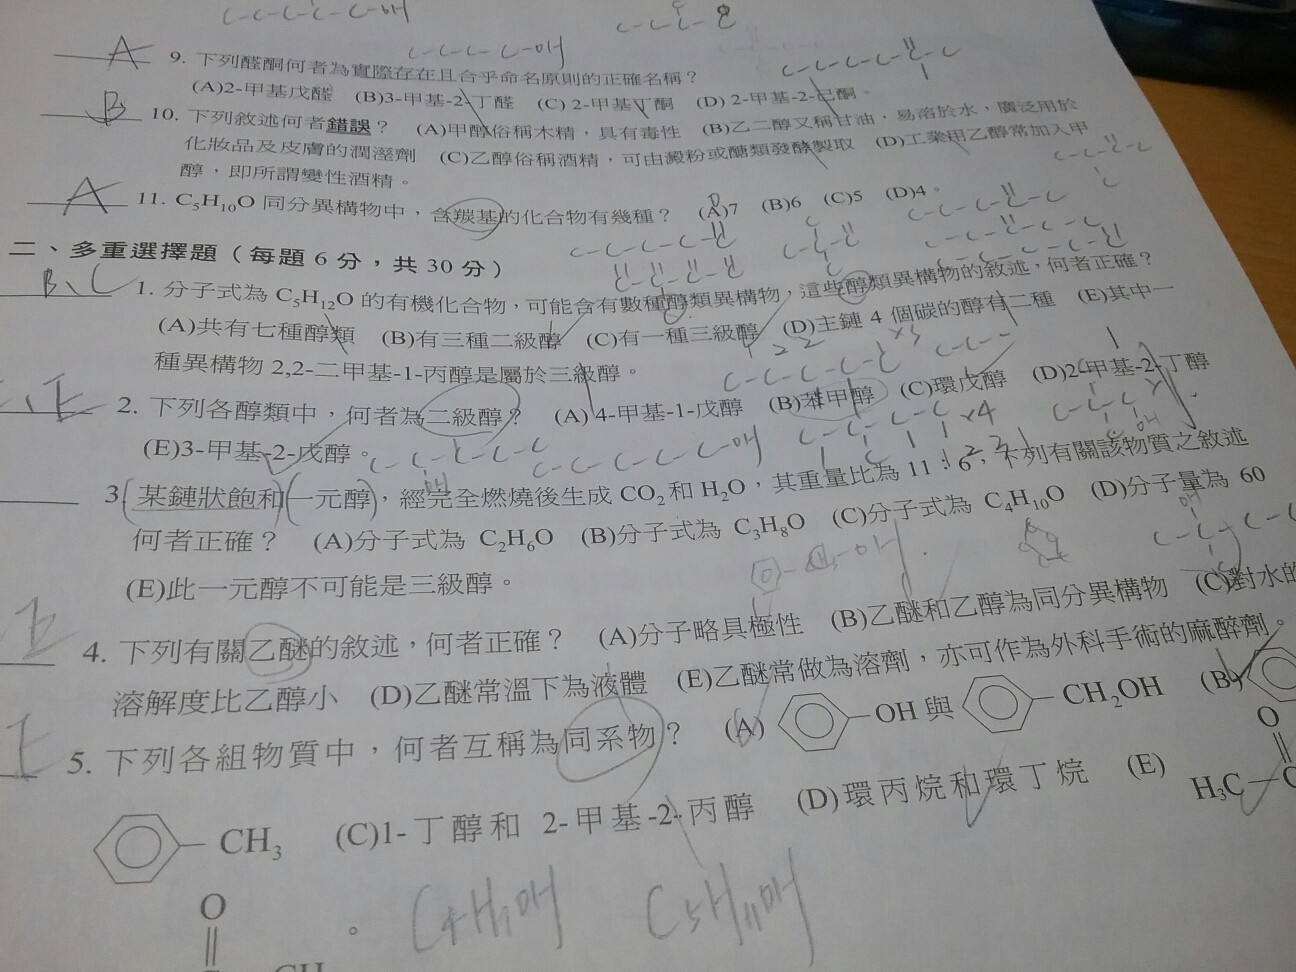 C-C-C-C-C-OH
C-C-C-C
A 9. 下列醛酮何者為實際存在且合乎命名原則的正確名稱？
C-C-C-C-OH
(A)2-甲基戊醛 (B)3-甲基-2-丁醛 (C) 2-甲基丁酮 (D) 2-甲基-2-己酮。
B 10. 下列敘述何者錯誤？ (A)甲醇俗稱木精，具有毒性 (B)乙二醇又稱甘油，易溶於水，廣泛用於
化妝品及皮膚的潤溼劑 (C)乙醇俗稱酒精，可由澱粉或醣類發酵製取 (D)工業用乙醇常加入甲
醇，即所謂變性酒精。
A 11. C₅H₁₀O 同分異構物中，含羰基的化合物有幾種？ (A)7 (B)6 (C)5 (D)4。
二、多重選擇題（每題 6 分，共 30 分）
B、C 1. 分子式為 C₅H₁₂O 的有機化合物，可能含有數種醇類異構物，這些醇類異構物的敘述，何者正確？
(A)共有七種醇類 (B)有三種二級醇 (C)有一種三級醇 (D)主鏈 4 個碳的醇有二種 (E)其中一
種異構物 2,2-二甲基-1-丙醇是屬於三級醇。
2. 下列各醇類中，何者為二級醇？ (A) 4-甲基-1-戊醇 (B)苯甲醇 (C)環戊醇 (D)2-甲基-2-丁醇
(E)3-甲基-2-戊醇。
3. 某鏈狀飽和一元醇，經完全燃燒後生成 CO₂ 和 H₂O，其重量比為 11：6，下列有關該物質之敘述
何者正確？ (A)分子式為 C₂H₆O (B)分子式為 C₃H₈O (C)分子式為 C₄H₁₀O (D)分子量為 60
(E)此一元醇不可能是三級醇。
E 4. 下列有關乙醚的敘述，何者正確？ (A)分子略具極性 (B)乙醚和乙醇為同分異構物 (C)對水的
溶解度比乙醇小 (D)乙醚常溫下為液體 (E)乙醚常做為溶劑，亦可作為外科手術的麻醉劑。
5. 下列各組物質中，何者互稱為同系物？ (A) OH 與 CH₂OH (B)
CH₃ (C)1-丁醇和 2-甲基-2-丙醇 (D)環丙烷和環丁烷 (E) H₃C-C
O
O
。
C₄H₉OH C₅H₁₁OH
CH